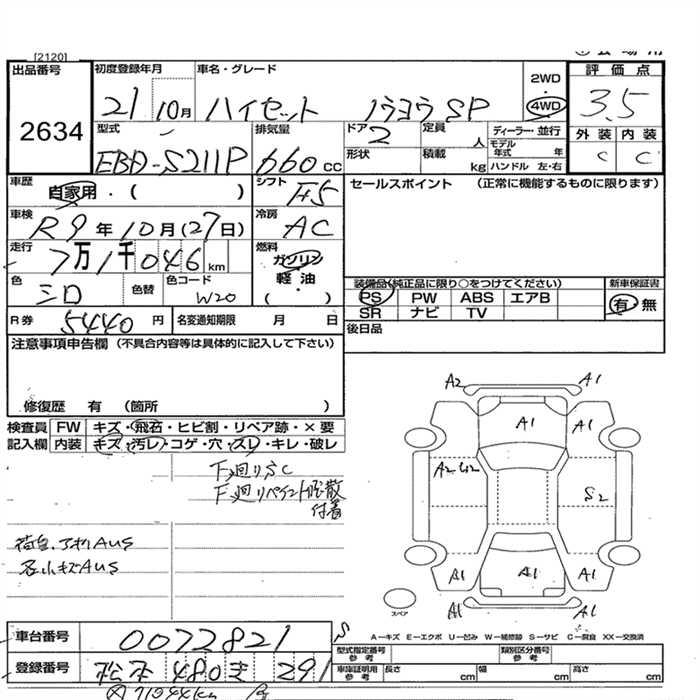 [2120]
出品番号
2634
初度登録年月
21 10月
車名・グレード
ハイゼット
2WD
4WD
評価点
3.5
型式
EBD-S211P
排気量
660 cc
ドア
2
定員
人
ディーラー・並行
モデル年式 年
外装 内装
C C
形状
積載
kg
ハンドル 左・右
車歴
自家用・( )
シフト
F5
セールスポイント (正常に機能するものに限ります)
車検
R9年10月(27日)
冷房
AC
走行
7万1千046km
燃料
ガソリン
軽油
・
( )
色
シロ
色替
色コード
W20
装備品(純正品に限り○をつけてください)
新車保証書
PS PW ABS エアB
有・無
SR ナビ TV
R券
5440円
名変通知期限 月 日
後日品
注意事項申告欄 (不具合内容等は具体的に記入して下さい)
修復歴 有 (箇所 )
検査員 FW キズ・飛石・ヒビ割・リペア跡・×要
記入欄 内装 キズ・汚レ・コゲ・穴・スレ・キレ・破レ
A2 A1
A1 A1 A1
A2 U2
S2
下廻りSC
下廻リペイント飛散
付着
荷台、アオリAUS
各小キズAUS
A1 A1 A1
A1 A1
スペア
A-キズ E-エクボ U-凹み W-補修跡 S-サビ C-腐食 XX-交換済
車台番号
0072821
S
登録番号
松本 480 291
型式指定番号
参考
類別区分番号
参考
車庫証明用
参考
長さ cm 幅 cm 高さ cm
71044km